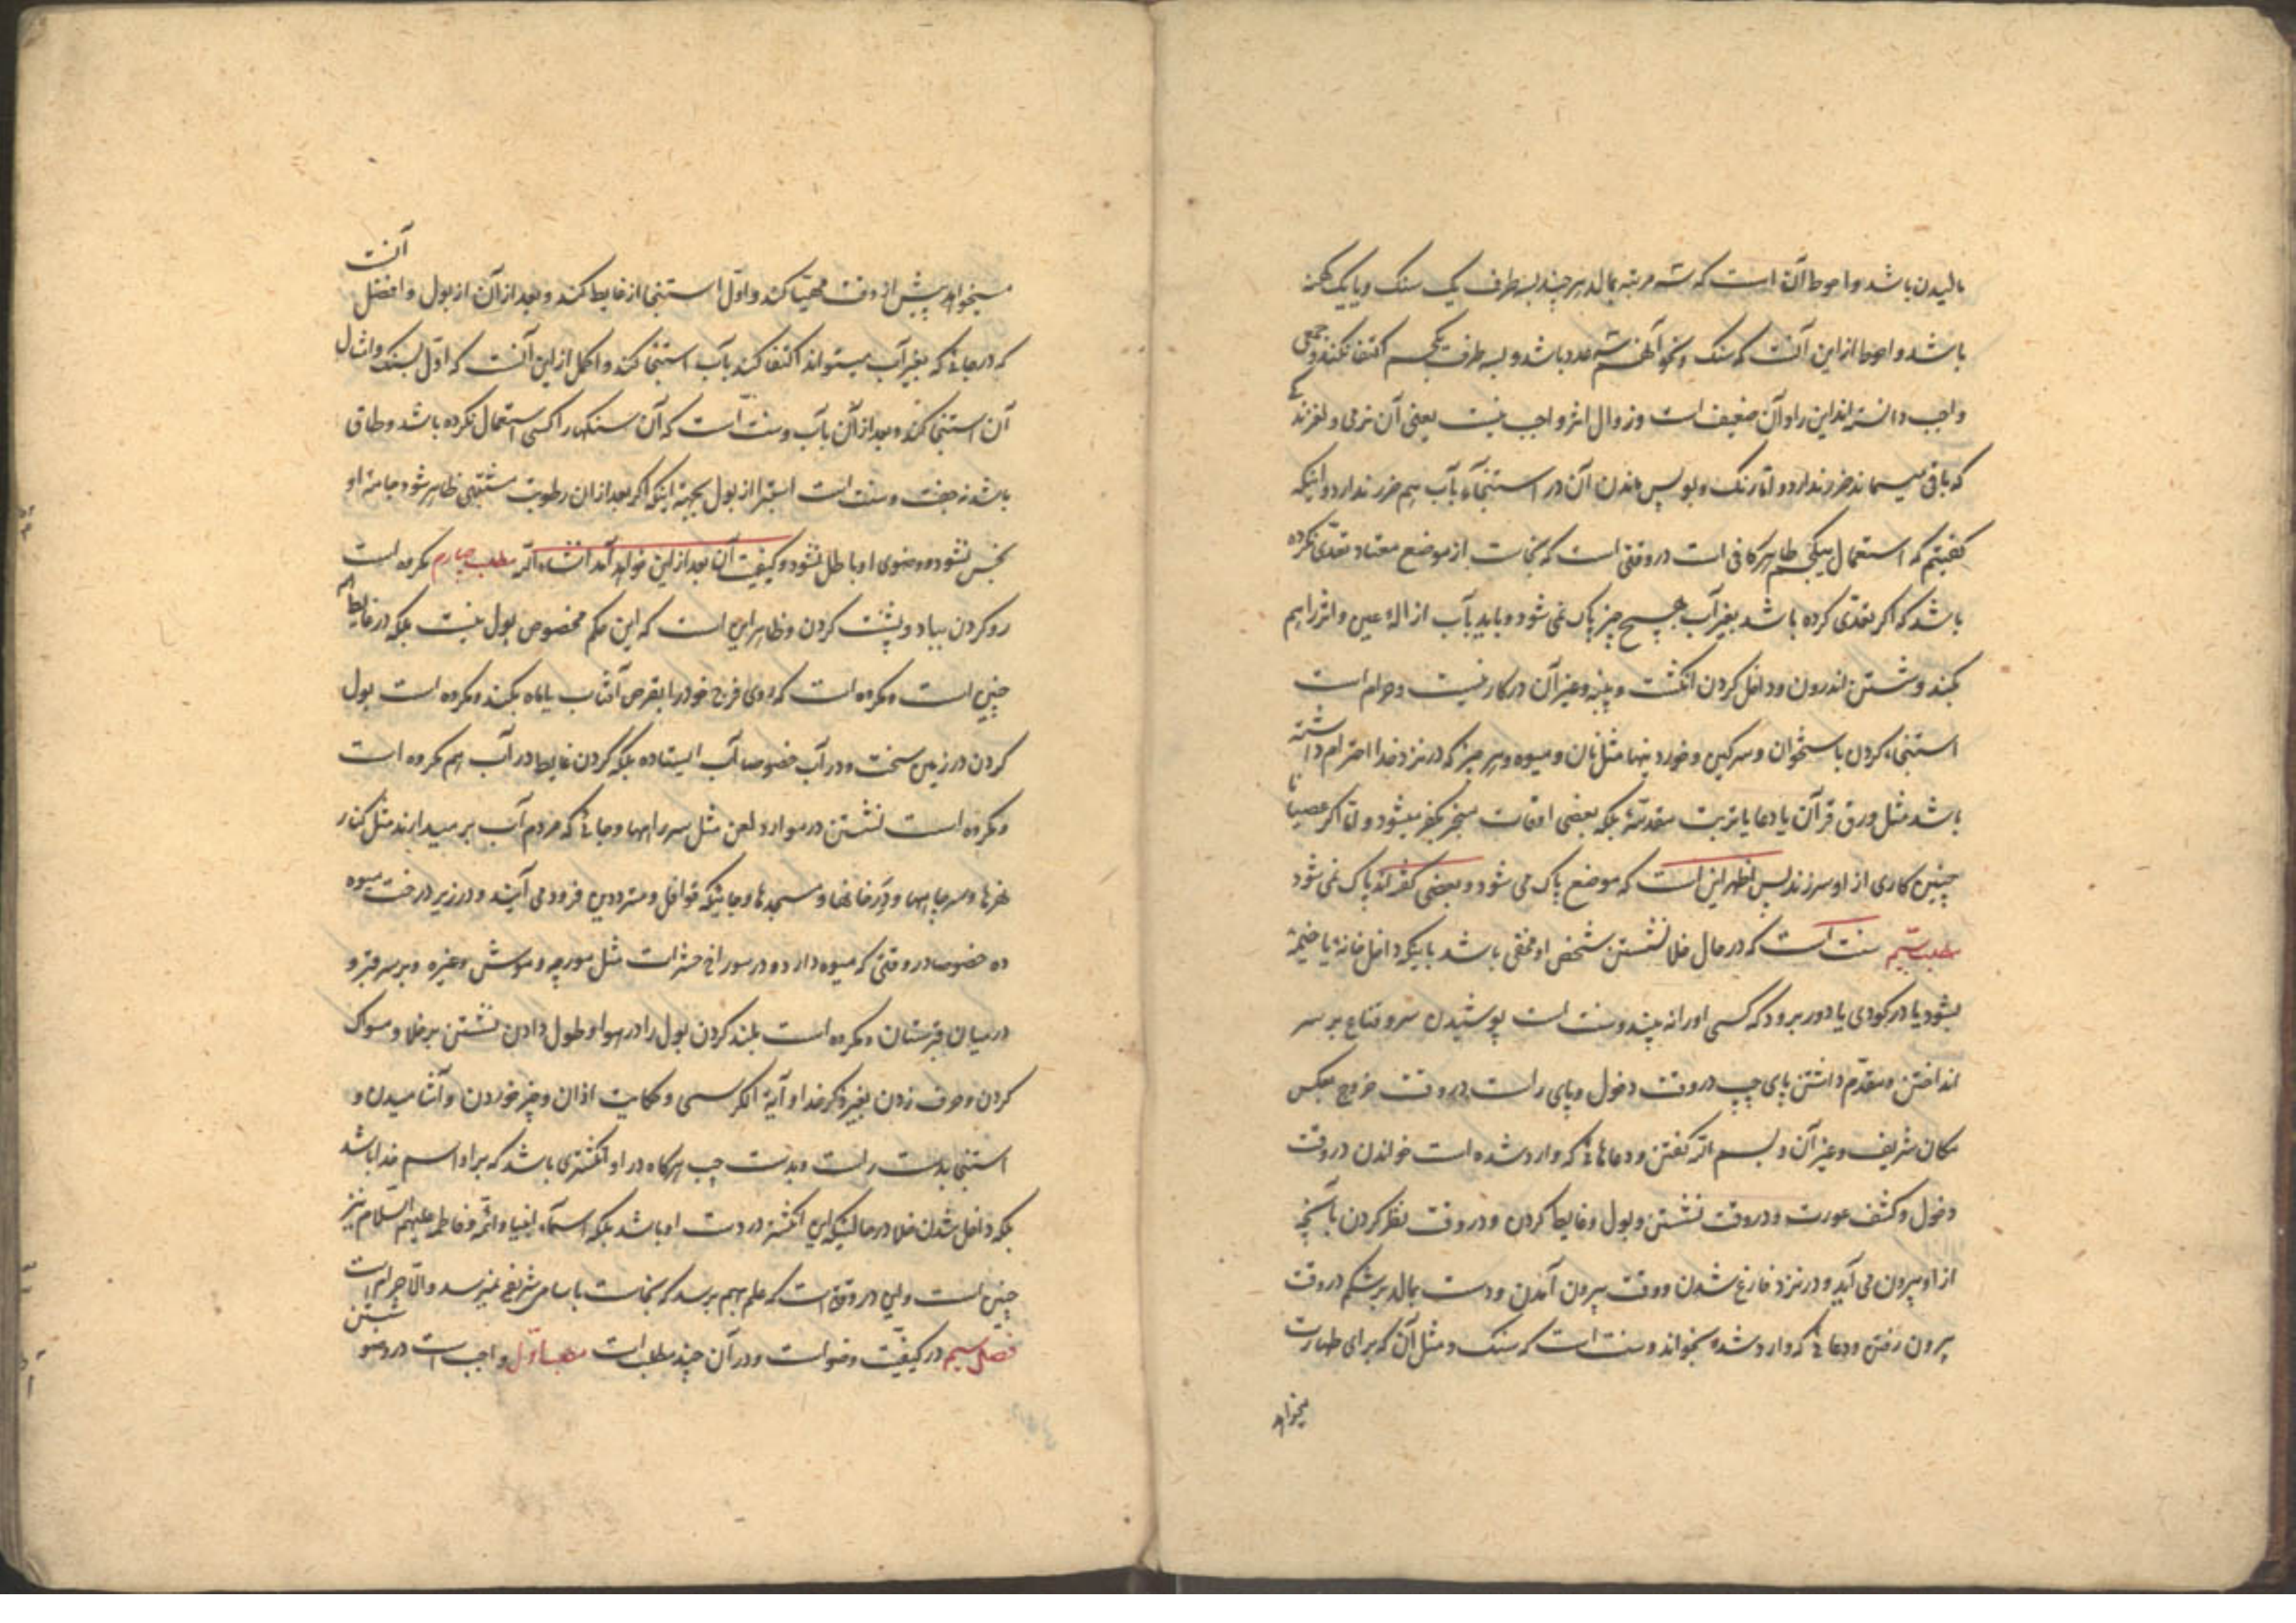 مالیدن باشد و احوط آن است که سه مرتبه بمالد هر چند بسه طرف یک سنک و یا یک کهنه
باشد و احوط از این آنست که سنک و نحو آنهم سه عدد باشد و بسه طرف یکجسم اکتفا نکنند و جمعی
واجب دانسته‌اند این را و آن ضعیف است و زوال اثر واجب نیست یعنی آن نرمی و لغزندکی
که باقی میماند ضرر ندارد و اما رنک و بو پس ماندن آن در استنجاء بآب هم ضرر ندارد و اینکه
کفتیم که استعمال یکجسم طاهر کافی است در وقتی است که نجاست از موضع معتاد تعدّی نکرده
باشد که اکر تعدّی کرده باشد بغیر آب هیچ چیز پاک نمی شود و باید بآب ازالهٔ عین و اثر را هم
بکند و شستن اندرون و داخل کردن انکشت و پنبه و غیر آن در کار نیست و حرام است
استنجاء کردن باستخوان و سرکین و خوردنیها مثل نان و میوه و هر چیز که در نزد خدا احترام داشته
باشد مثل ورق قرآن یا دعا یا تربت مقدسه بلکه بعضی اوقات منجر بکفر میشود و اما اکر عصیانا
چنین کاری از او سر زند پس اظهر این است که موضع پاک می شود و بعضی کفته‌اند پاک نمی شود
مطلب سیّم سنت است که در حال خلا نشستن شخص او مخفی باشد باینکه داخل خانهٔ یا خیمهٔ
بشود یا در کودی یا دور برود که کسی او را نه بیند و سنت است پوشیدن سر و قناع بر سر
انداختن و مقدّم داشتن پای چپ در وقت دخول و پای راست در وقت خروج بعکس
مکان شریف و غیر آن و بسم الله کفتن و دعاهائی که وارد شده است خواندن در وقت
دخول و کشف عورت و در وقت نشستن و بول و غایط کردن و در وقت نظر کردن بآنچه
از او بیرون می آید و در نزد فارغ شدن و وقت بیرون آمدن و دست بمالد بر شکم در وقت
بیرون رفتن و دعائی که وارد شده بخواند و سنت است که سنک و مثل آن که برای طهارت
میخواهد
میخواهد پیش از وقت مهیّا کند و اوّل استنجا از غایط کند و بعد از آن از بول و افضل آنست
که در جائی که بغیر آب میتواند اکتفا کند بآب استنجا کند و اکمل از این آنست که اوّل بسنک و امثال
آن استنجا کند و بعد از آن بآب و سنت است که آن سنکها را کسی استعمال نکرده باشد و طاق
باشد نه جفت و سنت است استبرا از بول بجهة اینکه اکر بعد از ان رطوبت مشتبهی ظاهر شود جامهٔ او
نجس نشود و وضوی او باطل نشود و کیفیت آن بعد از این خواهد آمد انشاء الله مطلب چهارم مکروه است
رو کردن بباد و پشت کردن و ظاهر این است که این حکم مخصوص بول نیست بلکه در غایط هم
چنین است و مکروه است که روی فرج خود را بقرص آفتاب یا ماه بکند و مکروه است بول
کردن در زمین سخت و در آب خصوصا آب ایستاده بلکه کردن غایط در آب هم مکروه است
و مکروه است نشستن در موارد لعن مثل سر راهها و جائی که مردم آب بر میدارند مثل کنار
نهرها و سر چاهها و در خانها و مسجدها و جائیکه قوافل و مترددین فرود می آیند و در زیر درخت میوه
ده خصوصا در وقتی که میوه دارد و در سوراخ حشرات مثل مورچه و موش و غیره و بر سر قبر و
در میان قبرستان و مکروه است بلند کردن بول را در هوا و طول دادن نشستن بر خلا و مسواک
کردن و حرف زدن بغیر ذکر خدا و آیة الکرسی و حکایت اذان و چیز خوردن و آشامیدن و
استنجی بدست راست و بدست چپ هرکاه در او انکشتری باشد که بر او اسم خدا باشد
بلکه داخل شدن خلا در حالتیکه این انکشتر در دست او باشد بلکه اسمآء انبیا و ائمّه و فاطمه علیهم السّلام نیز
چنین است و این در وقتی است که علم بهم نرسد که نجاست باسامی شریفه نمیرسد و الّا حرام است
فصل سیم در کیفیّت وضو است و در آن چند مطلب است مطلب اوّل واجب است در وضو شستن